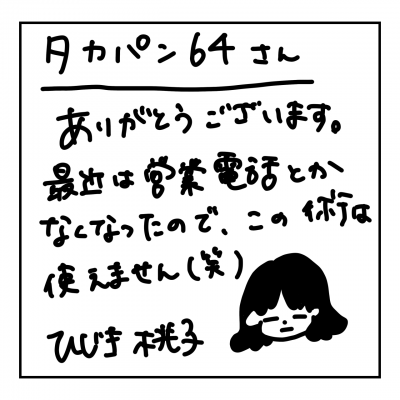 タカパン64さん
ありがとうございます。
最近は営業電話とか
なくなったので、この術は
使えません(笑)
ひじき桃子